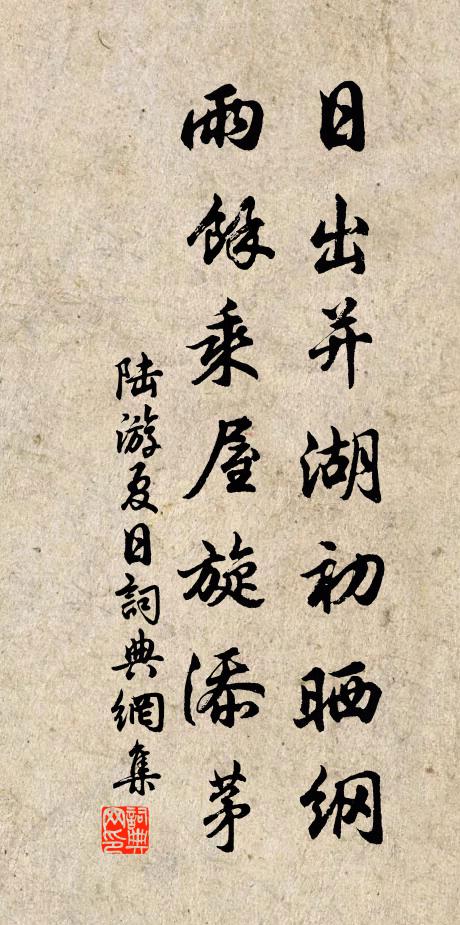 日出并湖初晒網
雨餘乘屋旋添茅
陆游夏日詞典網集
詞典网印